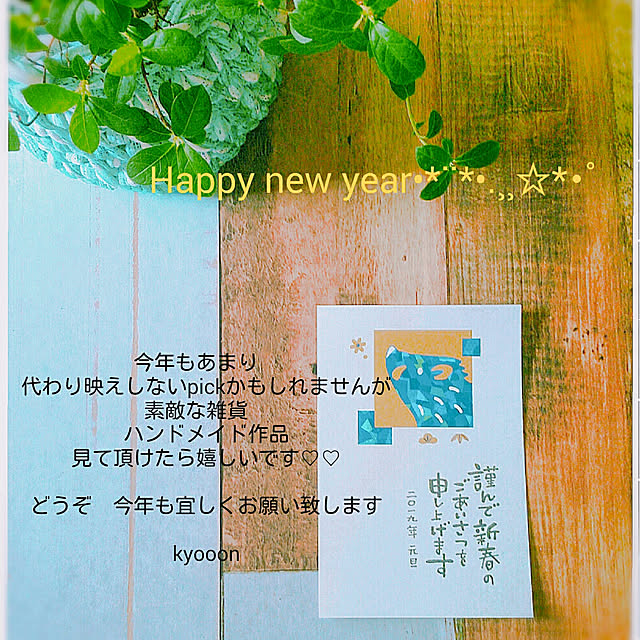 Happy new year•*¨*•.¸¸☆*•ﾟ
今年もあまり
代わり映えしないpickかもしれませんが
素敵な雑貨
ハンドメイド作品
見て頂けたら嬉しいです♡♡
どうぞ　今年も宜しくお願い致します
kyooon
謹んで新春の
ごあいさつを
申し上げます
二〇一九年 元旦